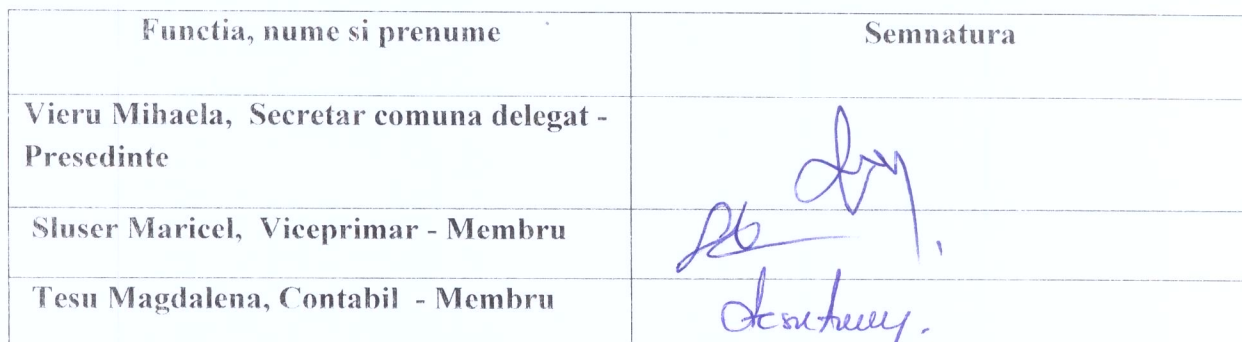 Functia, nume si prenume
Semnatura
Vieru Mihaela, Secretar comuna delegat -
Presedinte
Sluser Maricel, Viceprimar - Membru
Tesu Magdalena, Contabil - Membru